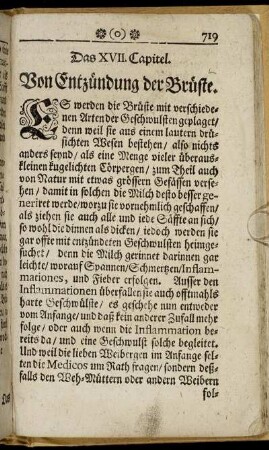 (o) 719
Das XVII. Capitel.
Von Entzündung der Brüste.
ES werden die Brüste mit verschiede-
nen Arten der Geschwulsten geplaget/
denn weil sie aus einem lautern drü-
sichten Wesen bestehen/ also nichts
anders seynd/ als eine Menge vieler überaus-
kleinen kugelichten Cörpergen/ zum Theil auch
von Natur mit etwas grössern Gefässen verse-
hen/ damit in solchen die Milch desto besser ge-
neriret werde/ worzu sie vornehmlich geschaffen/
als ziehen sie auch alle und iede Säffte an sich/
so wohl die dinnen als dicken/ iedoch werden sie
gar offte mit entzündeten Geschwulsten heimge-
suchet/ denn die Milch gerinnet darinnen gar
leichte/ worauf Spannen/ Schmertzen/ Inflam-
mationes, und Fieber erfolgen. Ausser den
Inflammationen überfallen sie auch offtmahls
harte Geschwülste/ es geschehe nun entweder
vom Anfange/ und daß kein anderer Zufall mehr
folge/ oder auch wenn die Inflammation be-
reits da/ und eine Geschwulst solche begleitet.
Und weil die lieben Weibergen im Anfange sel-
ten die Medicos um Rath fragen/ sondern deß-
falls den Weh-Müttern oder andern Weibern
fol-